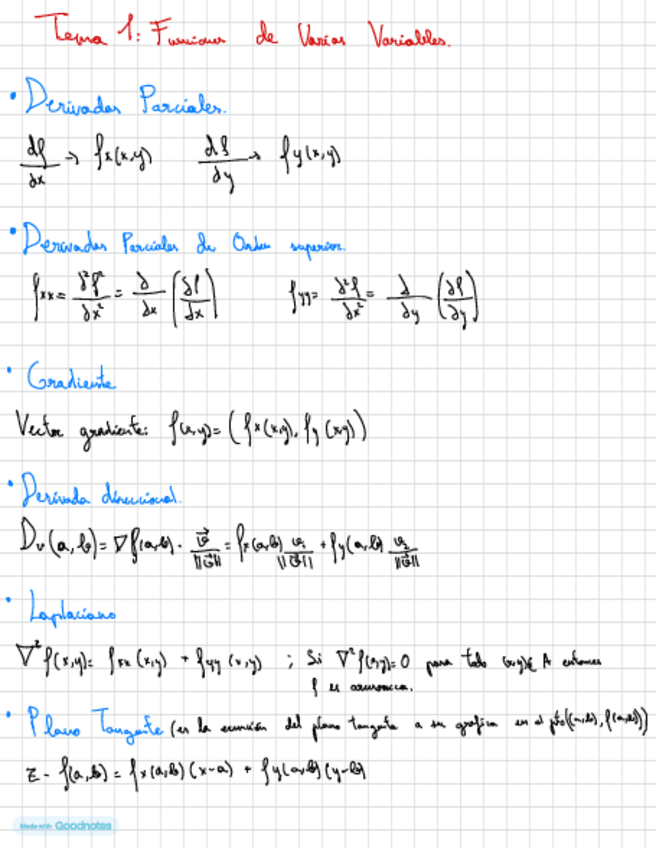 Tema 1: Funciones de Varias Variables.
• Derivadas Parciales.
∂f/∂x → fx(x,y)   ∂f/∂y → fy(x,y)
• Derivadas Parciales de Orden superior.
fxx = ∂²f/∂x² = ∂/∂x (∂f/∂x)   fyy = ∂²f/∂x² = ∂/∂y (∂f/∂y)
• Gradiente
Vector gradiente: f(x,y) = (fx(x,y), fy(x,y))
• Derivada direccional.
Dv(a,b) = ∇f(a,b) · v⃗/||v⃗|| = fx(a,b) v₁/||v⃗|| + fy(a,b) v₂/||v⃗||
• Laplaciano
∇²f(x,y) = fxx(x,y) + fyy(x,y) ; Si ∇²f(x,y)=0 para todo (x,y)∈ A entonces
f es armonica.
• Plano Tangente (es la ecuación del plano tangente a su gráfica en el pto((a,b), f(a,b)))
z - f(a,b) = fx(a,b)(x-a) + fy(a,b)(y-b)
Made with Goodnotes